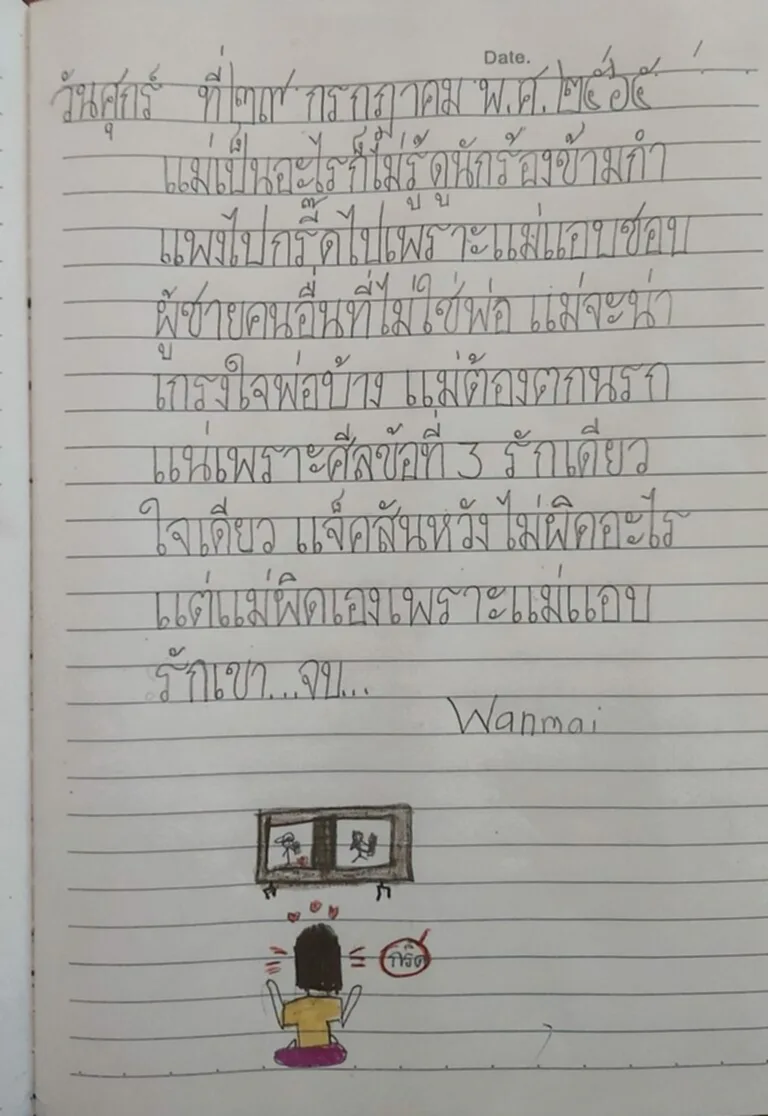 Date.
วันศุกร์ ที่ ๒๙ กรกฎาคม พ.ศ. ๒๕๖๕
แม่เป็นอะไรก็ไม่รู้ดูนักร้องข้ามกำ
แพงไปกรี๊ดไปเพราะแม่แอบชอบ
ผู้ชายคนอื่นที่ไม่ใช่พ่อ แม่จะน่า
เกรงใจพ่อบ้าง แม่ต้องตกนรก
แน่เพราะศีลข้อที่ 3 รักเดียว
ใจเดียว แจ็คสันหวังไม่ผิดอะไร
แต่แม่ผิดเองเพราะแม่แอบ
รักเขา...จบ...
Wanmai
กรีด